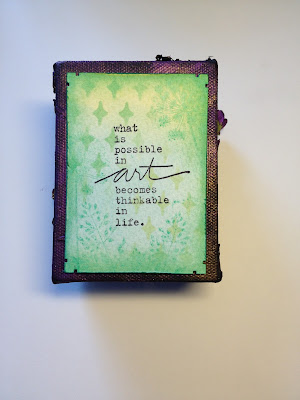 what
is
possible
in
art
becomes
thinkable
in
life.